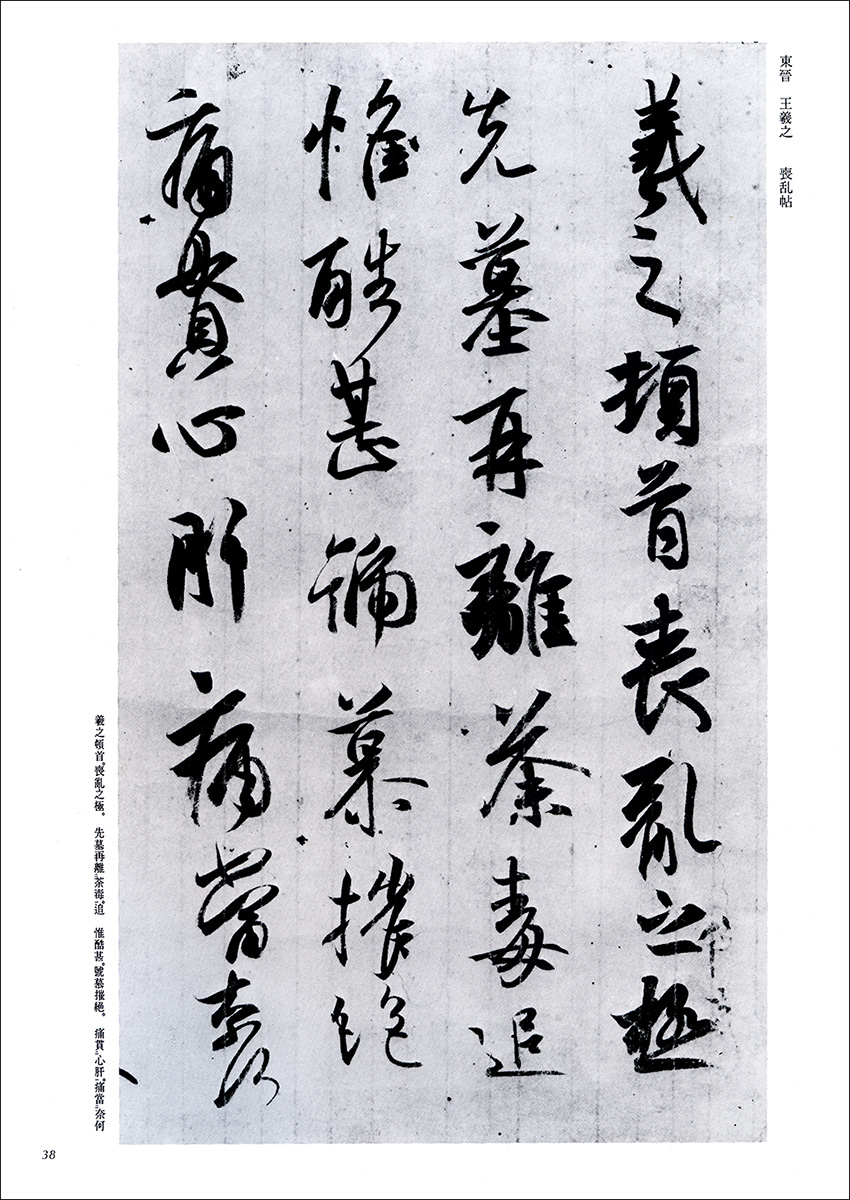 東晉 王羲之 喪乱帖
羲之頓首喪亂之極
先墓再離荼毒追
惟酷甚號慕摧絶
痛貫心肝痛當奈何
羲之頓首。喪亂之極。先墓再離荼毒。追惟酷甚。號慕摧絶。痛貫心肝。痛當奈何
38